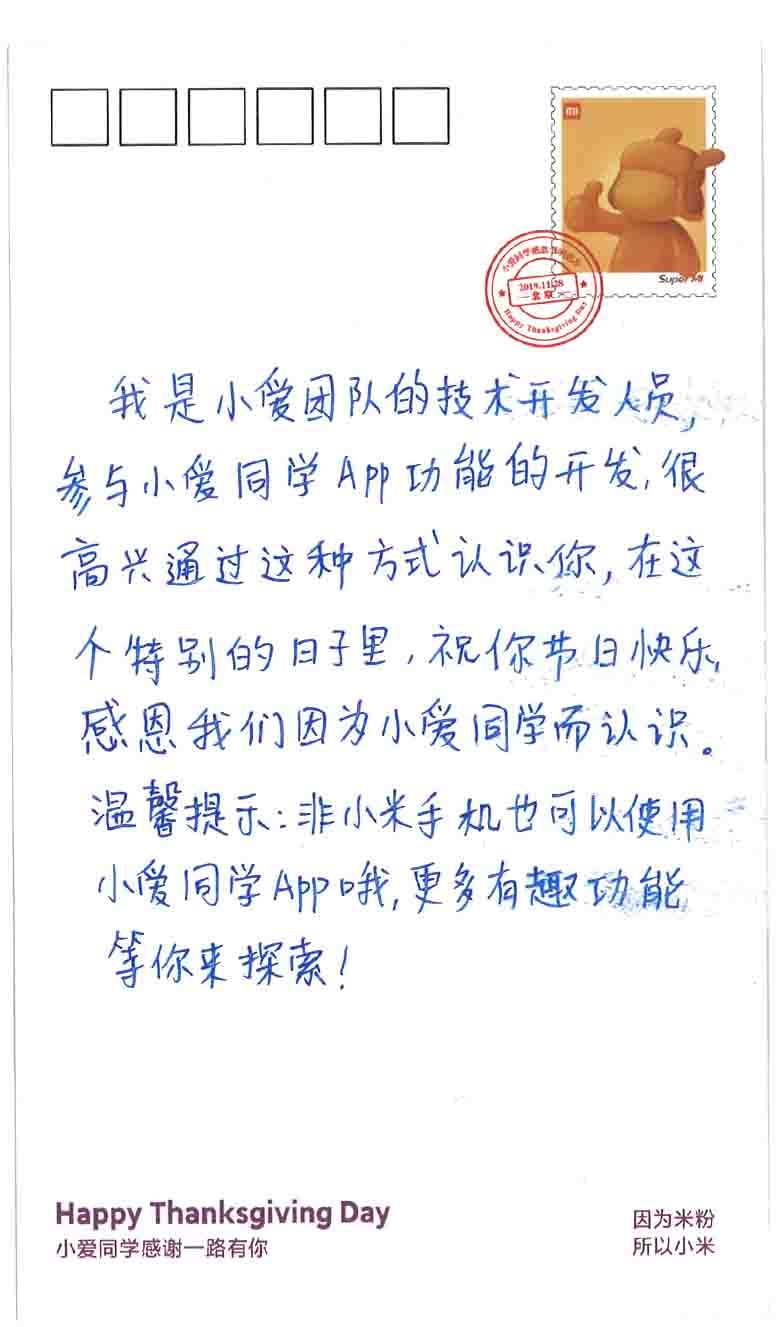 Super MI
2019.11.28
北京
Happy Thanksgiving Day
我是小爱团队的技术开发人员,
参与小爱同学App功能的开发,很
高兴通过这种方式认识你,在这
个特别的日子里,祝你节日快乐,
感恩我们因为小爱同学而认识。
温馨提示:非小米手机也可以使用
小爱同学App哦,更多有趣功能
等你来探索!
Happy Thanksgiving Day
小爱同学感谢一路有你
因为米粉
所以小米